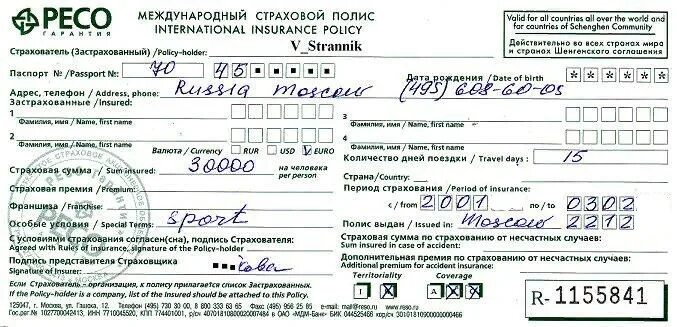 РЕСО
ГАРАНТИЯ
МЕЖДУНАРОДНЫЙ СТРАХОВОЙ ПОЛИС
INTERNATIONAL INSURANCE POLICY
Valid for all countries all over the world and
for countries of Schenghen Community
Действительно во всех странах мира
и странах Шенгенского соглашения
Страхователь (Застрахованный) /Policy-holder: V_Strannik
Паспорт № /Passport №: 70 45
Дата рождения / Date of birth * * * * * *
Адрес, телефон / Address, phone: Russia Moscow (495) 608-60-05
Застрахованные / Insured:
1
Фамилия, имя / Name, first name
3
Фамилия, имя / Name, first name
2
Фамилия, имя / Name, first name
4
Фамилия, имя / Name, first name
Валюта / Currency RUR USD V EURO
Страховая сумма / Sum insured: 30000 на человека
per person
Количество дней поездки / Travel days: 15
Страховая премия / Premium:
Страна/Country:
Период страхования / Period of insurance:
Франшиза / Franchise:
с / from 2001 по / to 0302
Особые условия / Special Terms: Sport
Полис выдан / Issued in: Moscow 2212
С условиями страхования согласен(сна), подпись Страхователя:
Agreed with Rules of insurance, signature of Policy-holder:
Страховая сумма по страхованию от несчастных случаев:
Sum insured in case of accident:
Подпись представителя Страховщика
Signature of Insurer:
Дополнительная премия по страхованию от несчастных случаев:
Additional premium for accident insurance:
Territoriality Coverage
I A
Если Страхователь - организация, к полису прилагается список Застрахованных.
If the Policy-holder is a company, list of the Insured should be attached to this Policy.
125047, г. Москва, ул. Гашека, 12. Телефоны: (495) 730 30 00, 8 800 333 63 65 Факс: (495) 956 25 85 e-mail: mail@reso.ru www.reso.ru
R- 1155841